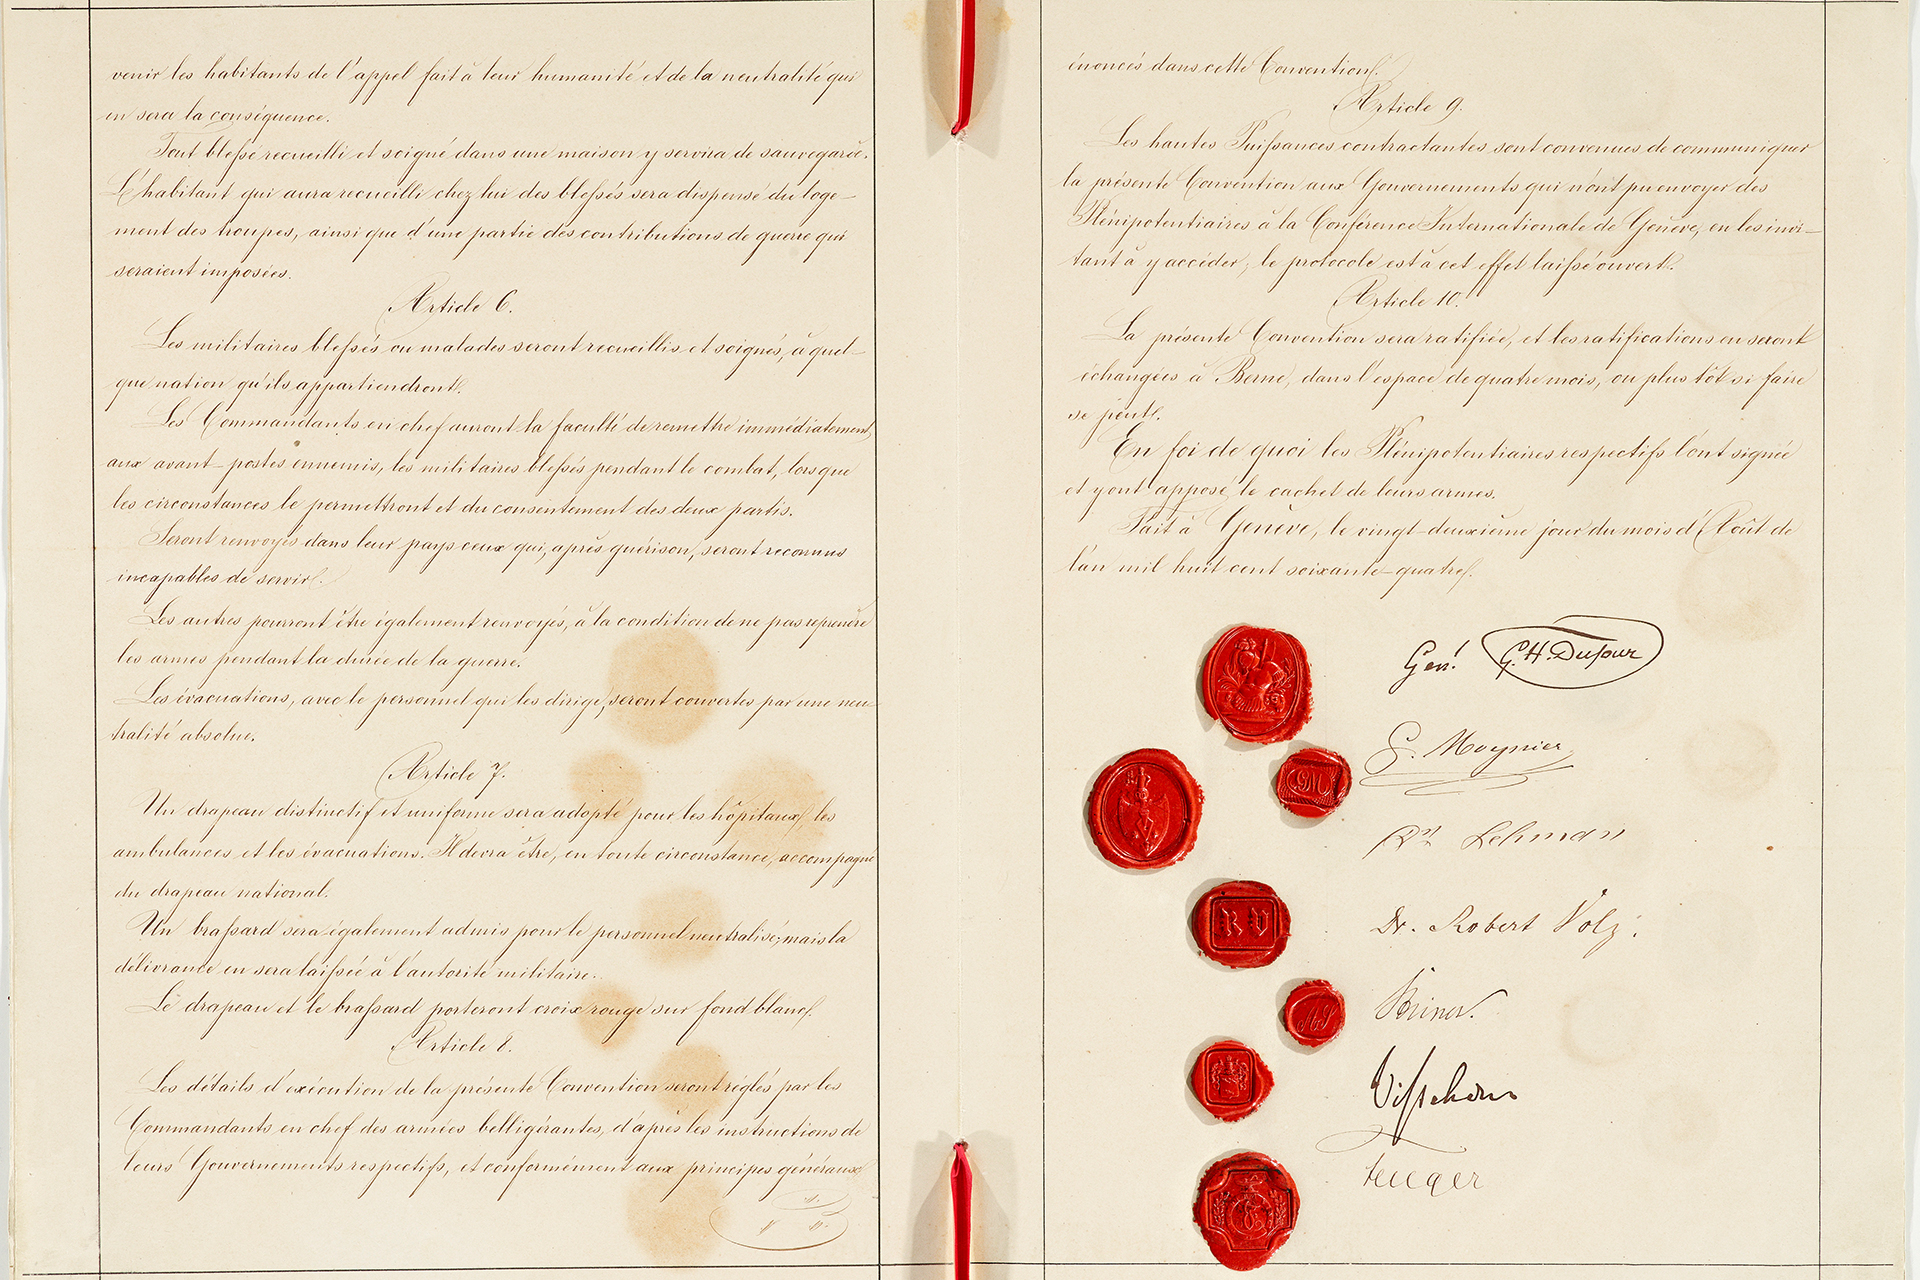 venir les habitants de l'appel fait à leur humanité et de la neutralité qui
en sera la conséquence.
Tout blessé recueilli et soigné dans une maison y servira de sauvegarde.
L'habitant qui aura recueilli chez lui des blessés sera dispensé du loge-
ment des troupes, ainsi que d'une partie des contributions de guerre qui
seraient imposées.
Article 6.
Les militaires blessés ou malades seront recueillis et soignés, à quel-
que nation qu'ils appartiendront.
Les Commandants en chef auront la faculté de remettre immédiatement
aux avant-postes ennemis, les militaires blessés pendant le combat, lorsque
les circonstances le permettront et du consentement des deux partis.
Seront renvoyés dans leur pays ceux qui, après guérison, seront reconnus
incapables de servir.
Les autres pourront être également renvoyés, à la condition de ne pas reprendre
les armes pendant la durée de la guerre.
Les évacuations, avec le personnel qui les dirige, seront couvertes par une neu-
tralité absolue.
Article 7.
Un drapeau distinctif et uniforme sera adopté pour les hôpitaux, les
ambulances et les évacuations. Il devra être, en toute circonstance, accompagné
du drapeau national.
Un brassard sera également admis pour le personnel neutralisé; mais la
délivrance en sera laissée à l'autorité militaire.
Le drapeau et le brassard porteront croix rouge sur fond blanc.
Article 8.
Les détails d'exécution de la présente Convention seront réglés par les
Commandants en chef des armées belligérantes, d'après les instructions de
leurs Gouvernements respectifs, et conformément aux principes généraux
énoncés dans cette Convention.
Article 9.
Les hautes Puissances contractantes sont convenues de communiquer
la présente Convention aux Gouvernements qui n'ont pu envoyer des
Plénipotentiaires à la Conférence Internationale de Genève, en les invi-
tant à y accéder; le protocole est à cet effet laissé ouvert.
Article 10.
La présente Convention sera ratifiée, et les ratifications en seront
échangées à Berne, dans l'espace de quatre mois, ou plus tôt si faire
se peut.
En foi de quoi les Plénipotentiaires respectifs l'ont signée
et y ont apposé le cachet de leurs armes.
Fait à Genève, le vingt-deuxième jour du mois d'Août de
l'an mil huit cent soixante-quatre.
Genl G. H. Dufour
G. Moynier
GM
Dr Lehman
Dr. Robert Volz.
RV
Steiner.
AS
Visschers